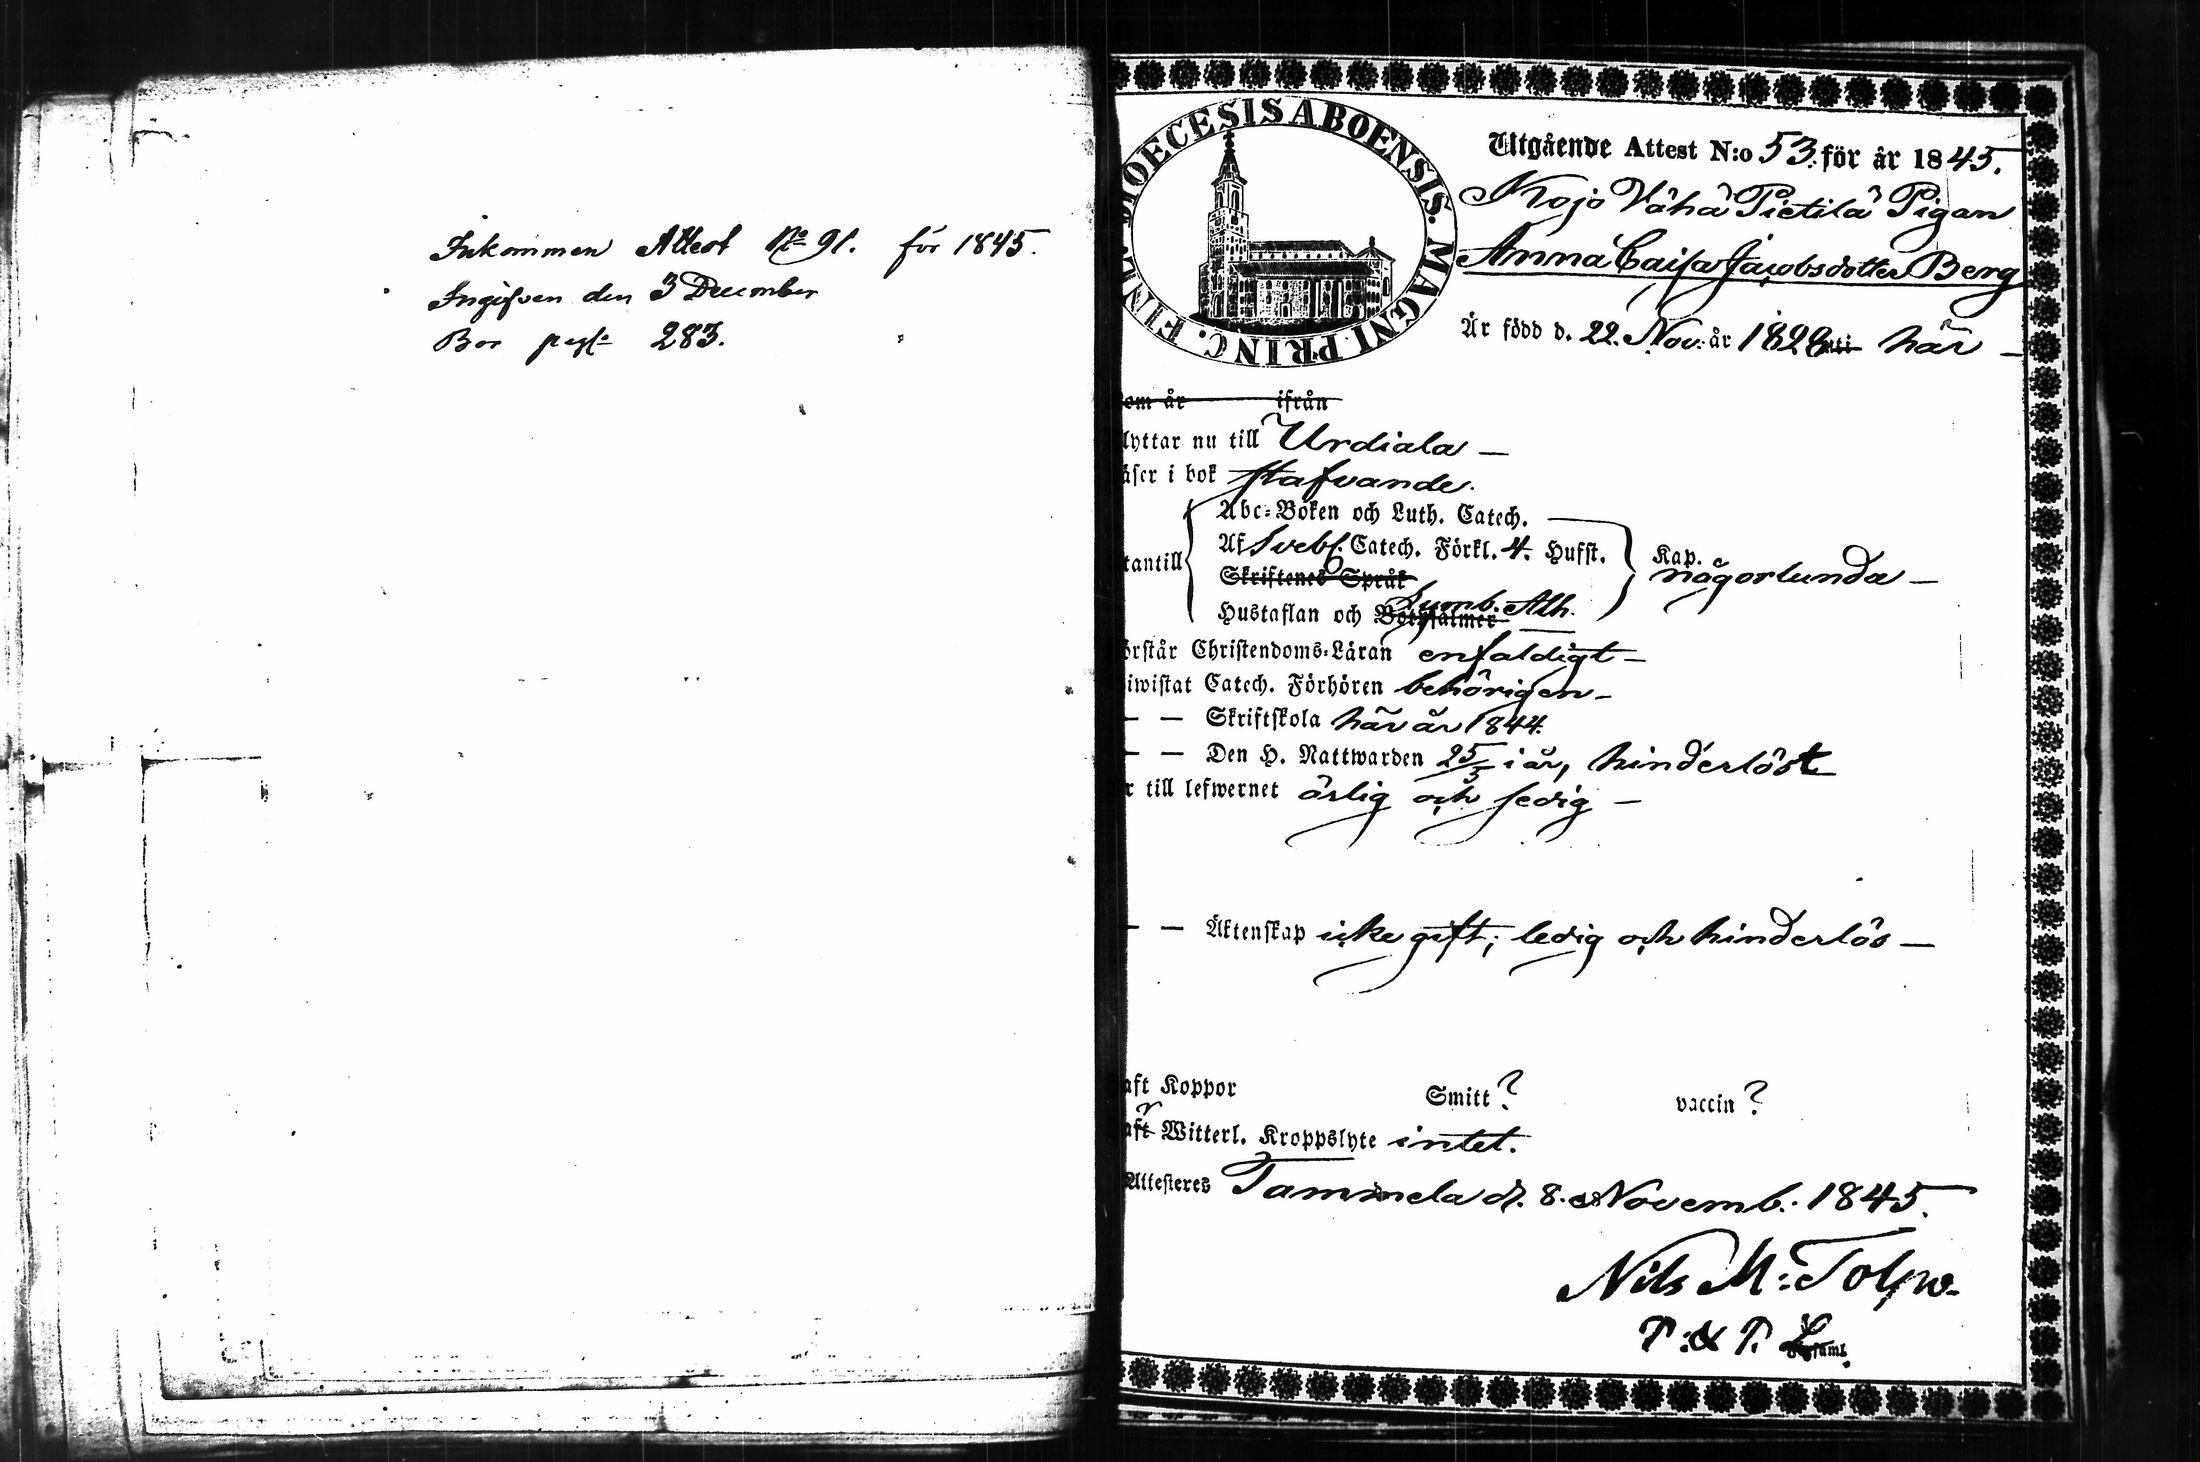 Inkommen Attest No 91. för 1845.
Ingifven den 3 December
Bor pag: 283.
DIOECESIS ABOENSIS. MAGNI PRINC. FINL.
Utgående Attest N:o 53. för år 1845.
Kojo Vähä Pietilä Pigan
Anna Caisa Jacobsdotter Berg
Är född d. 22. Nov. år 1828 uti här —
om år ifrån
lyttar nu till Urdiala —
äser i bok stafvande.
Abc-Boken och Luth. Catech.
tantill Af Svebl. Catech. Förkl. 4. Hufst. Kap. någorlunda —
Skriftenes Språk
Hustaflan och Botpsalmer Symb. Ath.
örstår Christendoms-Läran enfaldigt —
iwistat Catech. Förhören behörigen —
— — Skriftskola här år 1844.
— — Den H. Nattwarden 25/5 i år, hinderlöst
r till lefwernet ärlig och sedig —
— — Äktenskap icke gift; ledig och hinderlös —
aft Koppor Smitt ? vaccin ?
aft r Witterl. Kroppslyte intet.
Attesteres Tammela d. 8. Novemb. 1845.
Nils M:
P: & P.